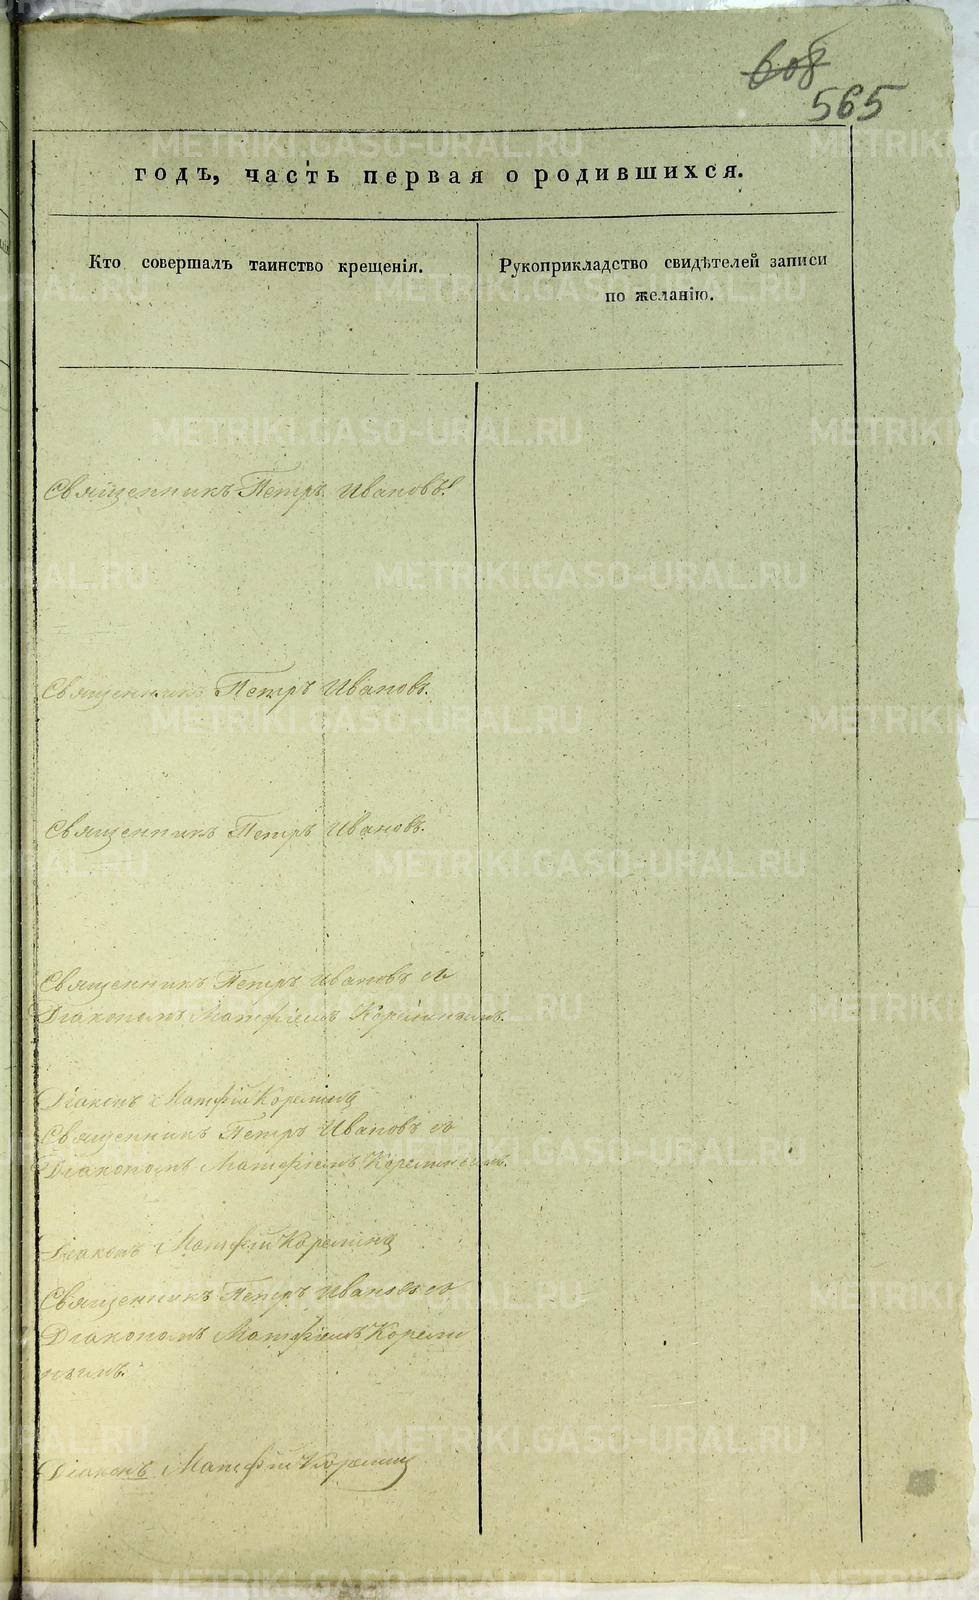 608
565
годъ, часть первая о родившихся.
Кто совершалъ таинство крещенія.
Рукоприкладство свидѣтелей записи
по желанію.
Священникъ Петръ Ивановъ.
Священникъ Петръ Ивановъ.
Священникъ Петръ Ивановъ.
Священникъ Петръ Ивановъ съ
Діакономъ Матфіемъ Корелинымъ.
Діаконъ Матфій Корелинъ
Священникъ Петръ Ивановъ со
Діакономъ Матфіемъ Корелинымъ.
Діаконъ Матфій Корелинъ
Священникъ Петръ Ивановъ со
Діакономъ Матфіемъ Корели
нымъ.
Діаконъ Матфій Корелинъ
METRIKI.GASO-URAL.RU